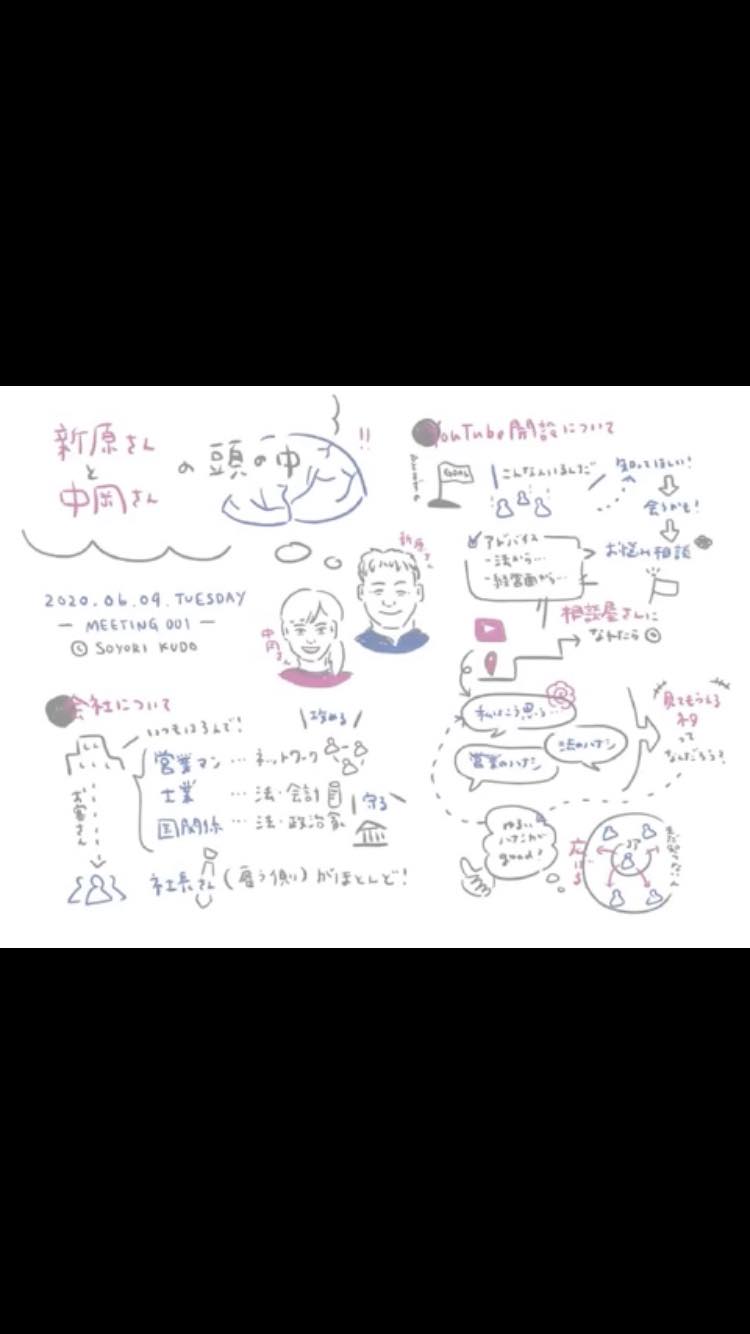 新原さん
と
中岡さん
の頭の中
!!
2020.06.09.TUESDAY
— MEETING 001 —
© SOYORI KUDO
新原さん
中岡さん
会社について
お客さん
営業マン … ネットワーク
士業 … 法・会計
国関係 … 法・政治家
攻める
守る
社長さん(雇う側)がほとんど!
YouTube開設について
GOAL
こんな人いるんだ
知ってほしい!
会うかも!
お悩み相談
アドバイス
・法から…
・経営面から…
相談屋さんに
なれたら
私はこう思う…
法のハナシ
営業のハナシ
見てもらえる
ネタ
って
なんだろう?
ゆるい
ハナシが
good?
広げる
コア